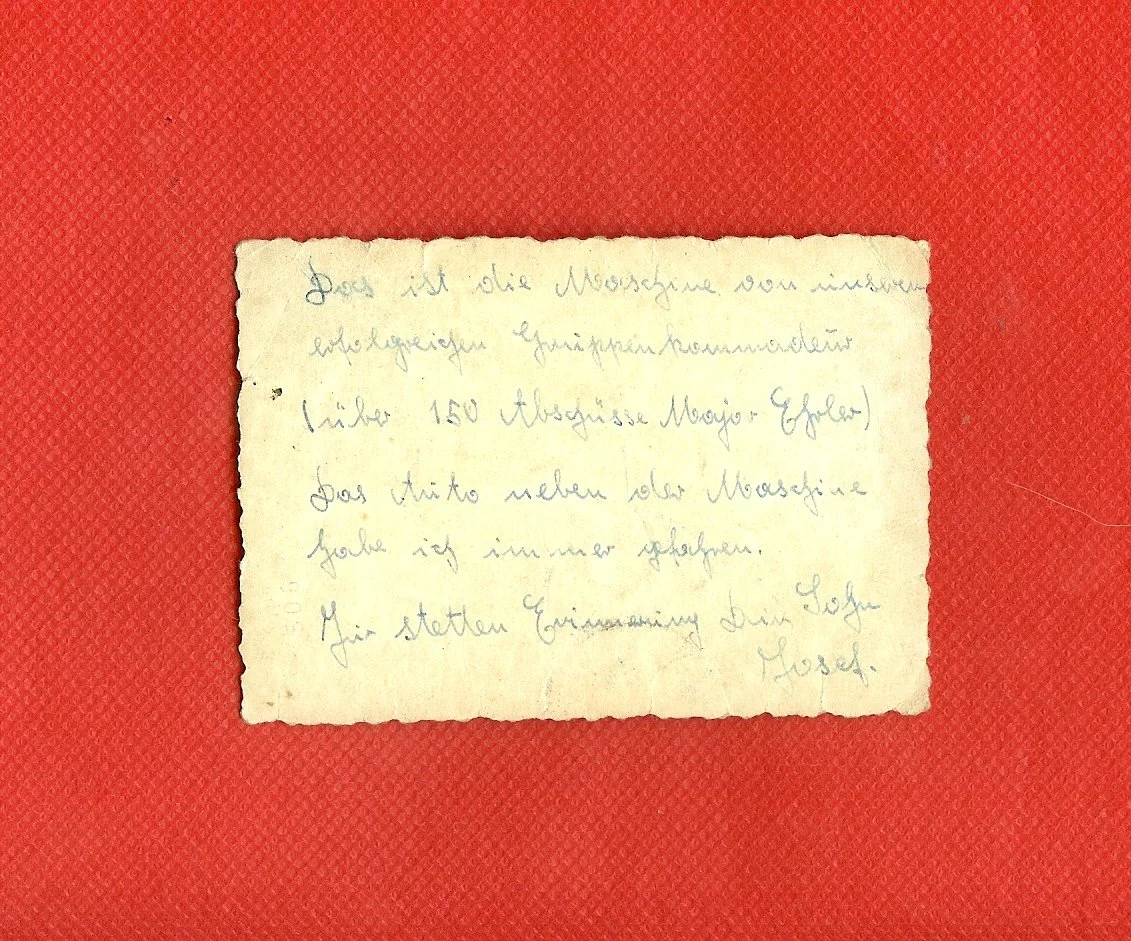 Das ist die Maschine von unseren
erfolgreichen Gruppenkommadeur
(über 150 Abschüsse Major Ehrler)
Das Auto neben der Maschine
habe ich immer gefahren.
Zur stetten Erinnerung Dein Sohn
Josef.
500